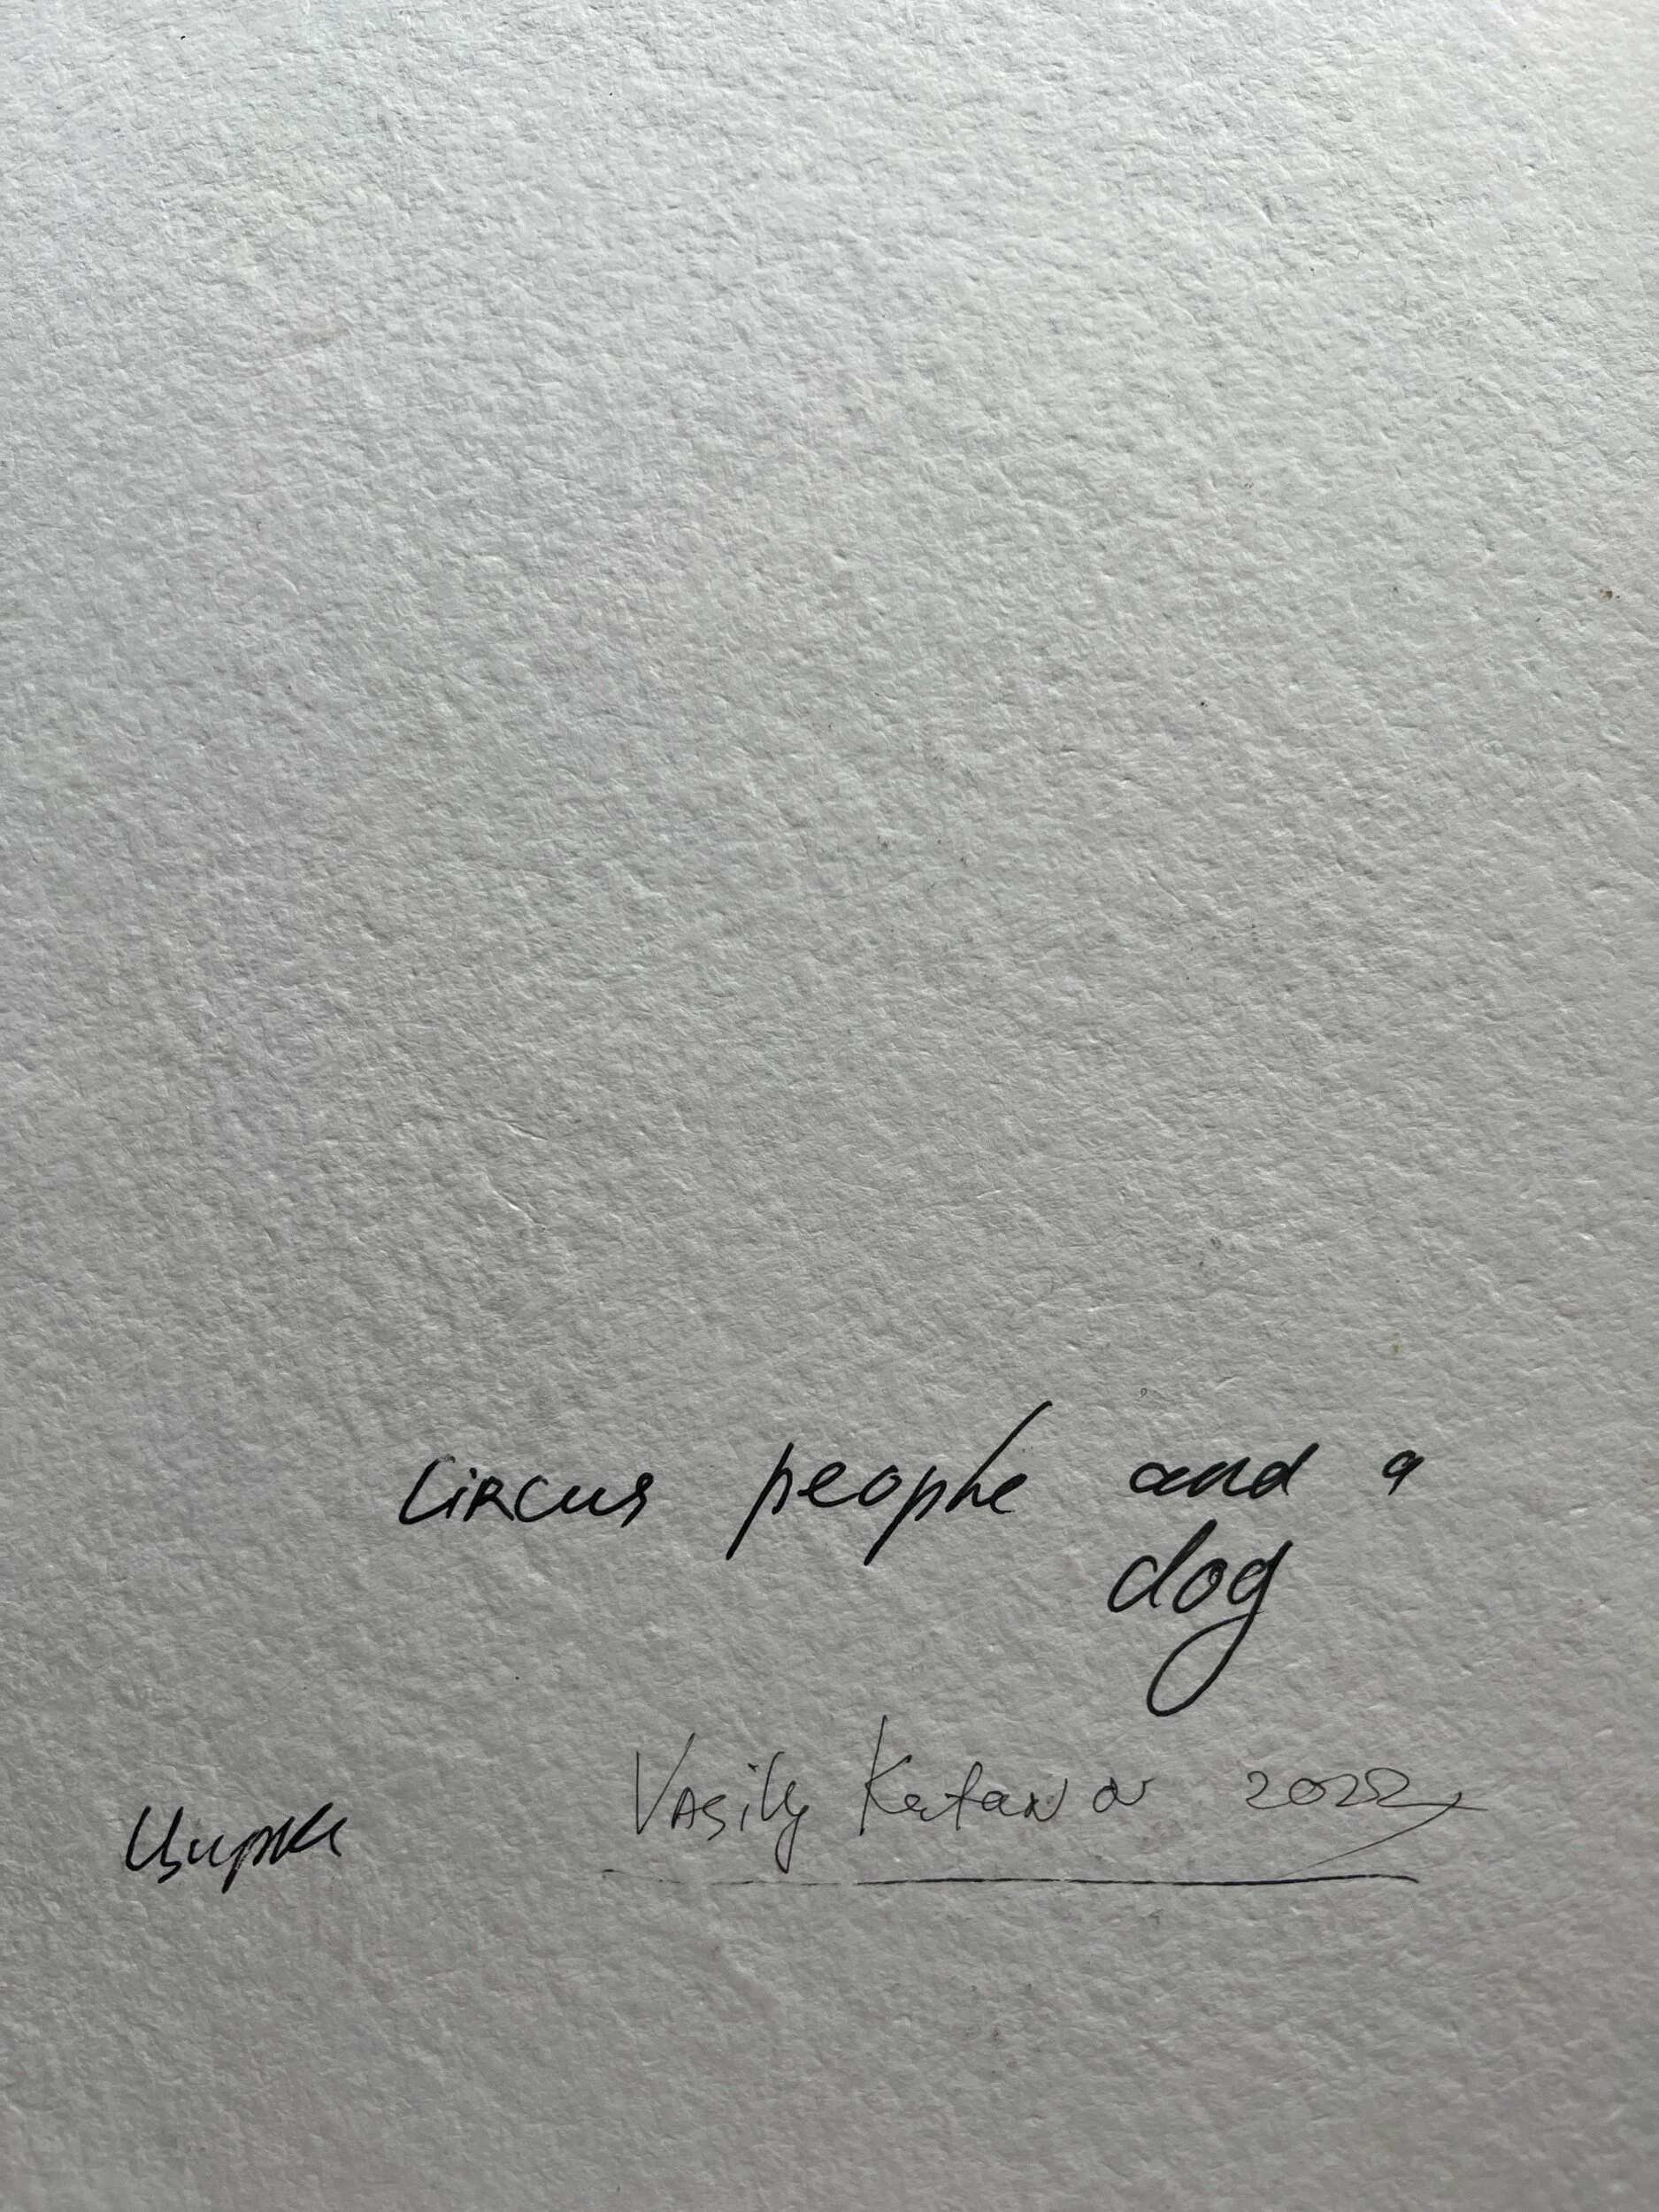 Circus people and a
dog
Vasily Katanov 2022
Цирк